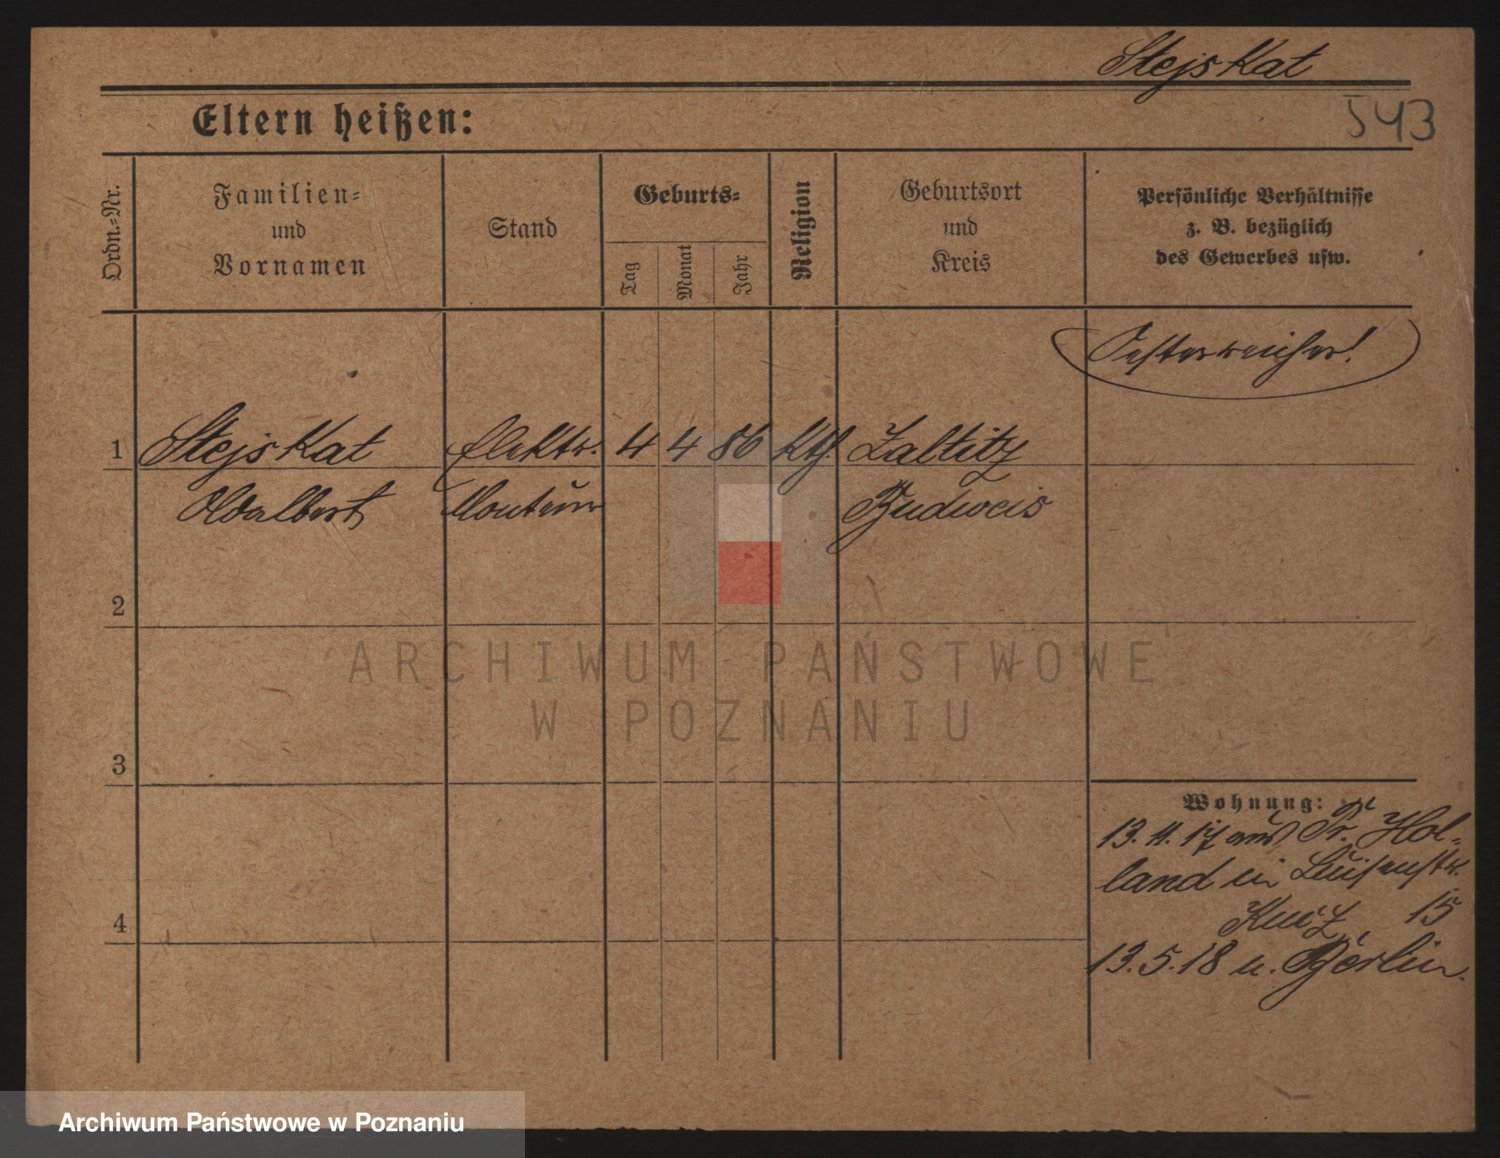 Stejskat
543
Eltern heißen:
Ordn.-Nr.
Familien-
und
Vornamen
Stand
Geburts-
Tag
Monat
Jahr
Religion
Geburtsort
und
Kreis
Persönliche Verhältnisse
z. B. bezüglich
des Gewerbes usw.
Oesterreicher!
1 Stejskat Elektr. 4 4 86 kth. Zaltitz
Adalbert Monteur Budweis
2
ARCHIWUM PAŃSTWOWE
W POZNANIU
3
Wohnung:
13.11.17 aus Pr. Hol-
land in Luisenstr.
15
4
13.5.18 n. Berlin.
Archiwum Państwowe w Poznaniu